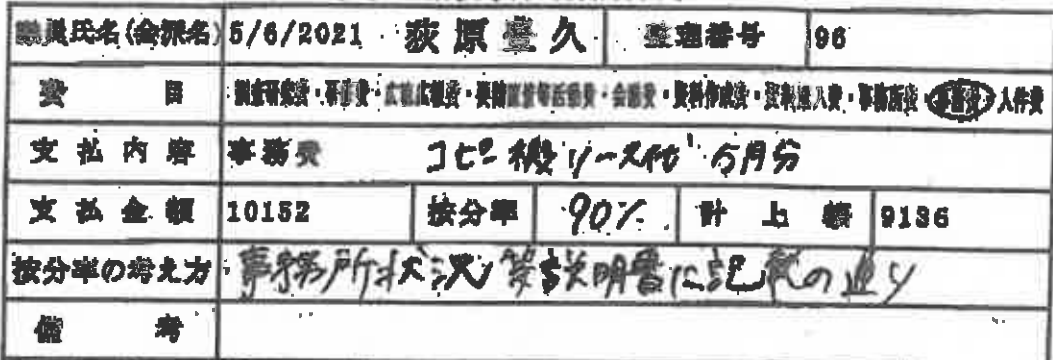 議員氏名(会派名) 5/6/2021 荻原豊久 整理番号 96
費目 調査研究費・研修費・広聴広報費・要請陳情等活動費・会議費・資料作成費・資料購入費・事務所費・事務費・人件費
支払内容 事務費 コピー機リース代 5月分
支払金額 10152 按分率 90% 計上額 9136
按分率の考え方 事務所状況等説明書に記載の通り
備考